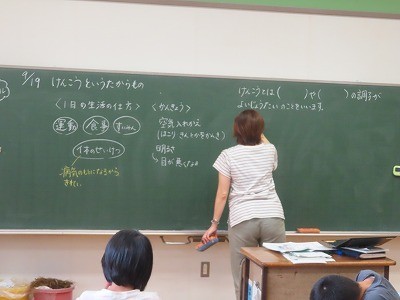 9/19 けんこうというたからもの
〈1日の生活の仕方〉
運動 食事 すいみん
体のせいけつ
病気のもとになるから
〈かんきょう〉
空気入れかえ
明るさ
→目が悪くなる
けんこうとは( )や( )の調子が
よいじょうたいのことをいいます。